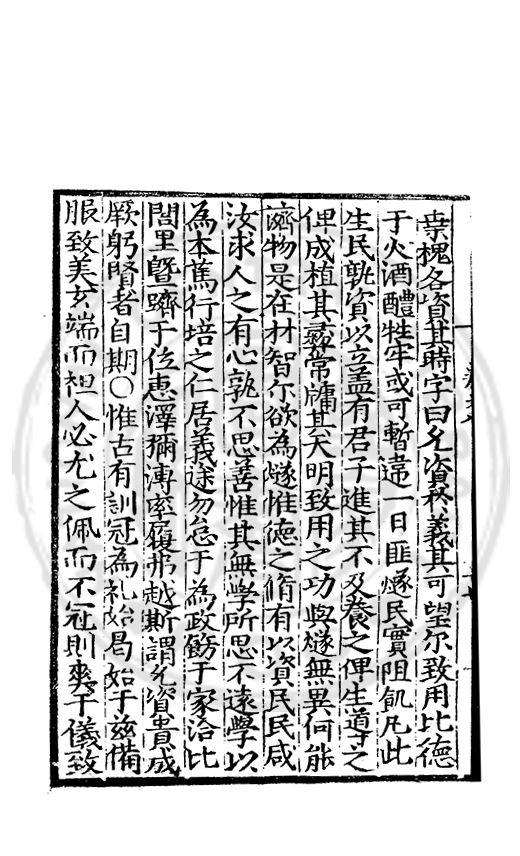 桒槐各資其時字曰允資於義其可望尔致用比德
于火酒醴牲牢或可暫違一日匪燧民實阻飢凢此
生民孰資以立盖有君子進其不及養之俾生導之
俾成植其彛常牗其天明致用之功與燧無異何能
濟物是在材智尓欲為燧惟德之脩有以資民民咸
汝求人之有心孰不思善惟其無學所思不遠學以
為本篤行培之仁居義途勿怠于為政飭于家洽比
閭里曁躋于位惠澤彌溥率履弗越斯謂允資貴成
厥躬賢者自期○惟古有訓冠為礼始曷始于兹備
服致美玄端而袒人必尤之佩而不冠則爽于儀致